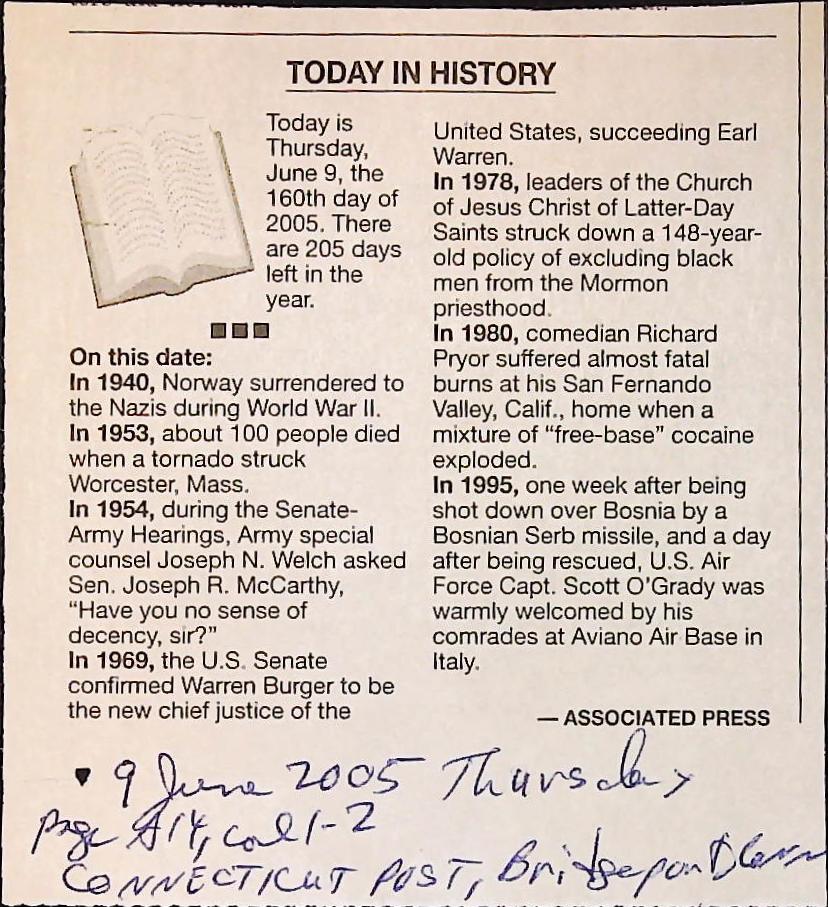 TODAY IN HISTORY
Today is
Thursday,
June 9, the
160th day of
2005. There
are 205 days
left in the
year.
On this date:
In 1940, Norway surrendered to
the Nazis during World War II.
In 1953, about 100 people died
when a tornado struck
Worcester, Mass.
In 1954, during the Senate-
Army Hearings, Army special
counsel Joseph N. Welch asked
Sen. Joseph R. McCarthy,
“Have you no sense of
decency, sir?”
In 1969, the U.S. Senate
confirmed Warren Burger to be
the new chief justice of the
United States, succeeding Earl
Warren.
In 1978, leaders of the Church
of Jesus Christ of Latter-Day
Saints struck down a 148-year-
old policy of excluding black
men from the Mormon
priesthood.
In 1980, comedian Richard
Pryor suffered almost fatal
burns at his San Fernando
Valley, Calif., home when a
mixture of “free-base” cocaine
exploded.
In 1995, one week after being
shot down over Bosnia by a
Bosnian Serb missile, and a day
after being rescued, U.S. Air
Force Capt. Scott O’Grady was
warmly welcomed by his
comrades at Aviano Air Base in
Italy.
— ASSOCIATED PRESS
9 June 2005 Thursday
page A14, col 1-2
CONNECTICUT POST, Bridgeport Conn